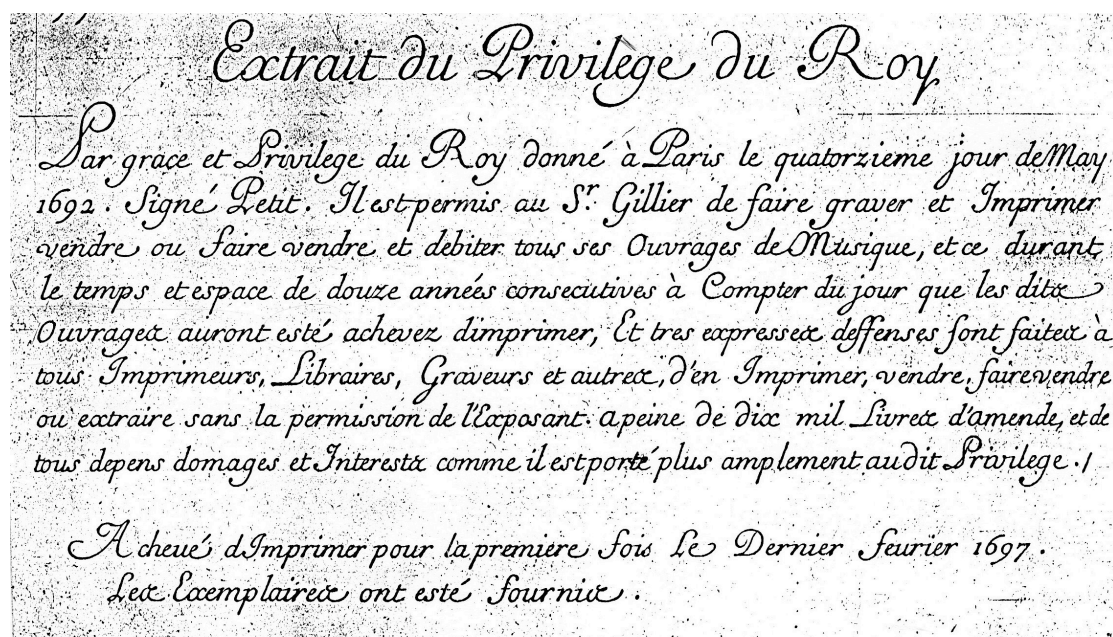 Extrait du Privilège du Roy
Par grace et Privilege du Roy donné à Paris le quatorzieme jour de May
1692. Signé Petit. Il est permis au Sr. Gillier de faire graver et Imprimer
vendre ou faire vendre et debiter tous ses Ouvrages de Musique, et ce durant
le temps et espace de douze années consecutives à Compter du jour que les dits
Ouvrages auront esté achevez dimprimer, Et tres expresses deffenses sont faites à
tous Imprimeurs, Libraires, Graveurs et autres, d'en Imprimer, vendre, faire vendre
ou extraire sans la permission de l'Exposant. apeine de dix mil Livres d'amende, et de
tous depens domages et Interests comme il est porté plus amplement audit Privilege./
Acheué d'Imprimer pour la premiere fois Le Dernier feurier 1697.
Les Exemplaires ont esté fournis.